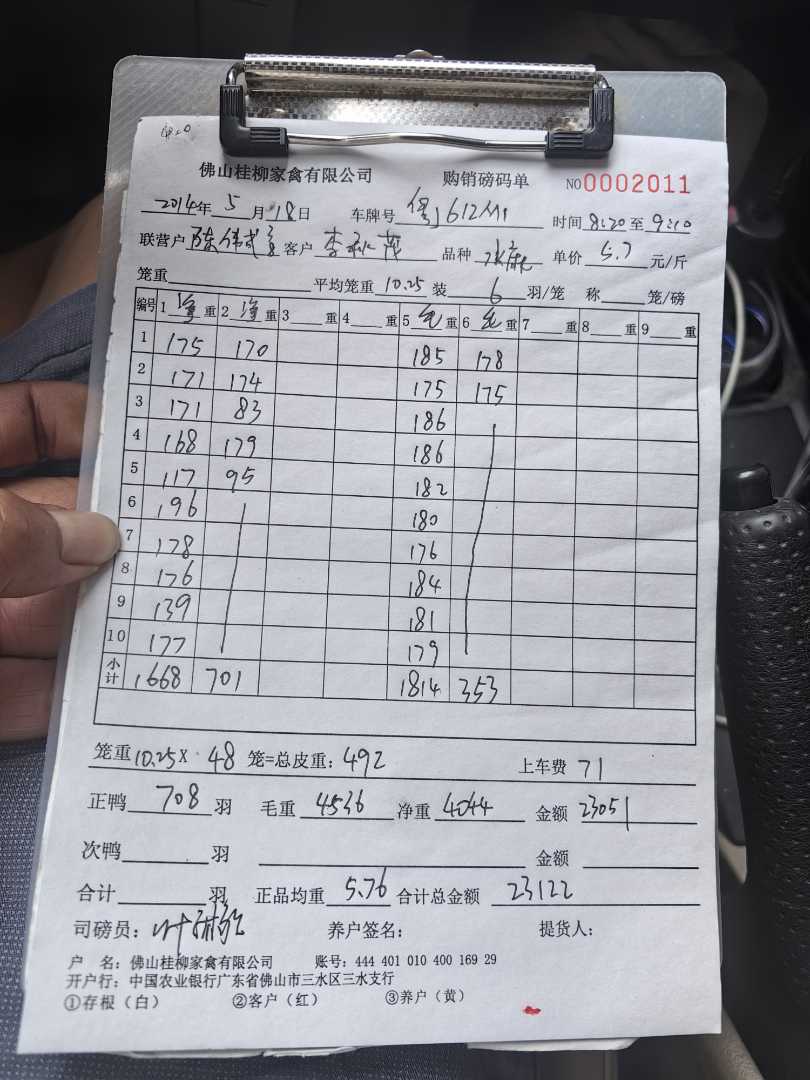 佛山桂柳家禽有限公司 购销磅码单 NO0002011
2014年 5 月 18 日 车牌号 612M1 时间 8:20 至 9:10
联营户 陈伟武 客户 李秋茂 品种 单价 5.7 元/斤
笼重 平均笼重 10.25 装 6 羽/笼 称 笼/磅
编号 1 净 重 2 净 重 3 重 4 重 5 毛 重 6 毛 重 7 重 8 重 9 重
1 175 170 185 178
2 171 174 175 175
3 171 83 186
4 168 179 186
5 117 95 182
6 196 180
7 178 176
8 176 184
9 139 181
10 177 179
小计 1668 701 1814 353
笼重 10.25 X 48 笼=总皮重: 492 上车费 71
正鸭 708 羽 毛重 4536 净重 4044 金额 23051
次鸭 羽 金额
合计 羽 正品均重 5.76 合计总金额 23122
司磅员: 养户签名: 提货人:
户 名: 佛山桂柳家禽有限公司 账号: 444 401 010 400 169 29
开户行: 中国农业银行广东省佛山市三水区三水支行
①存根(白) ②客户(红) ③养户(黄)